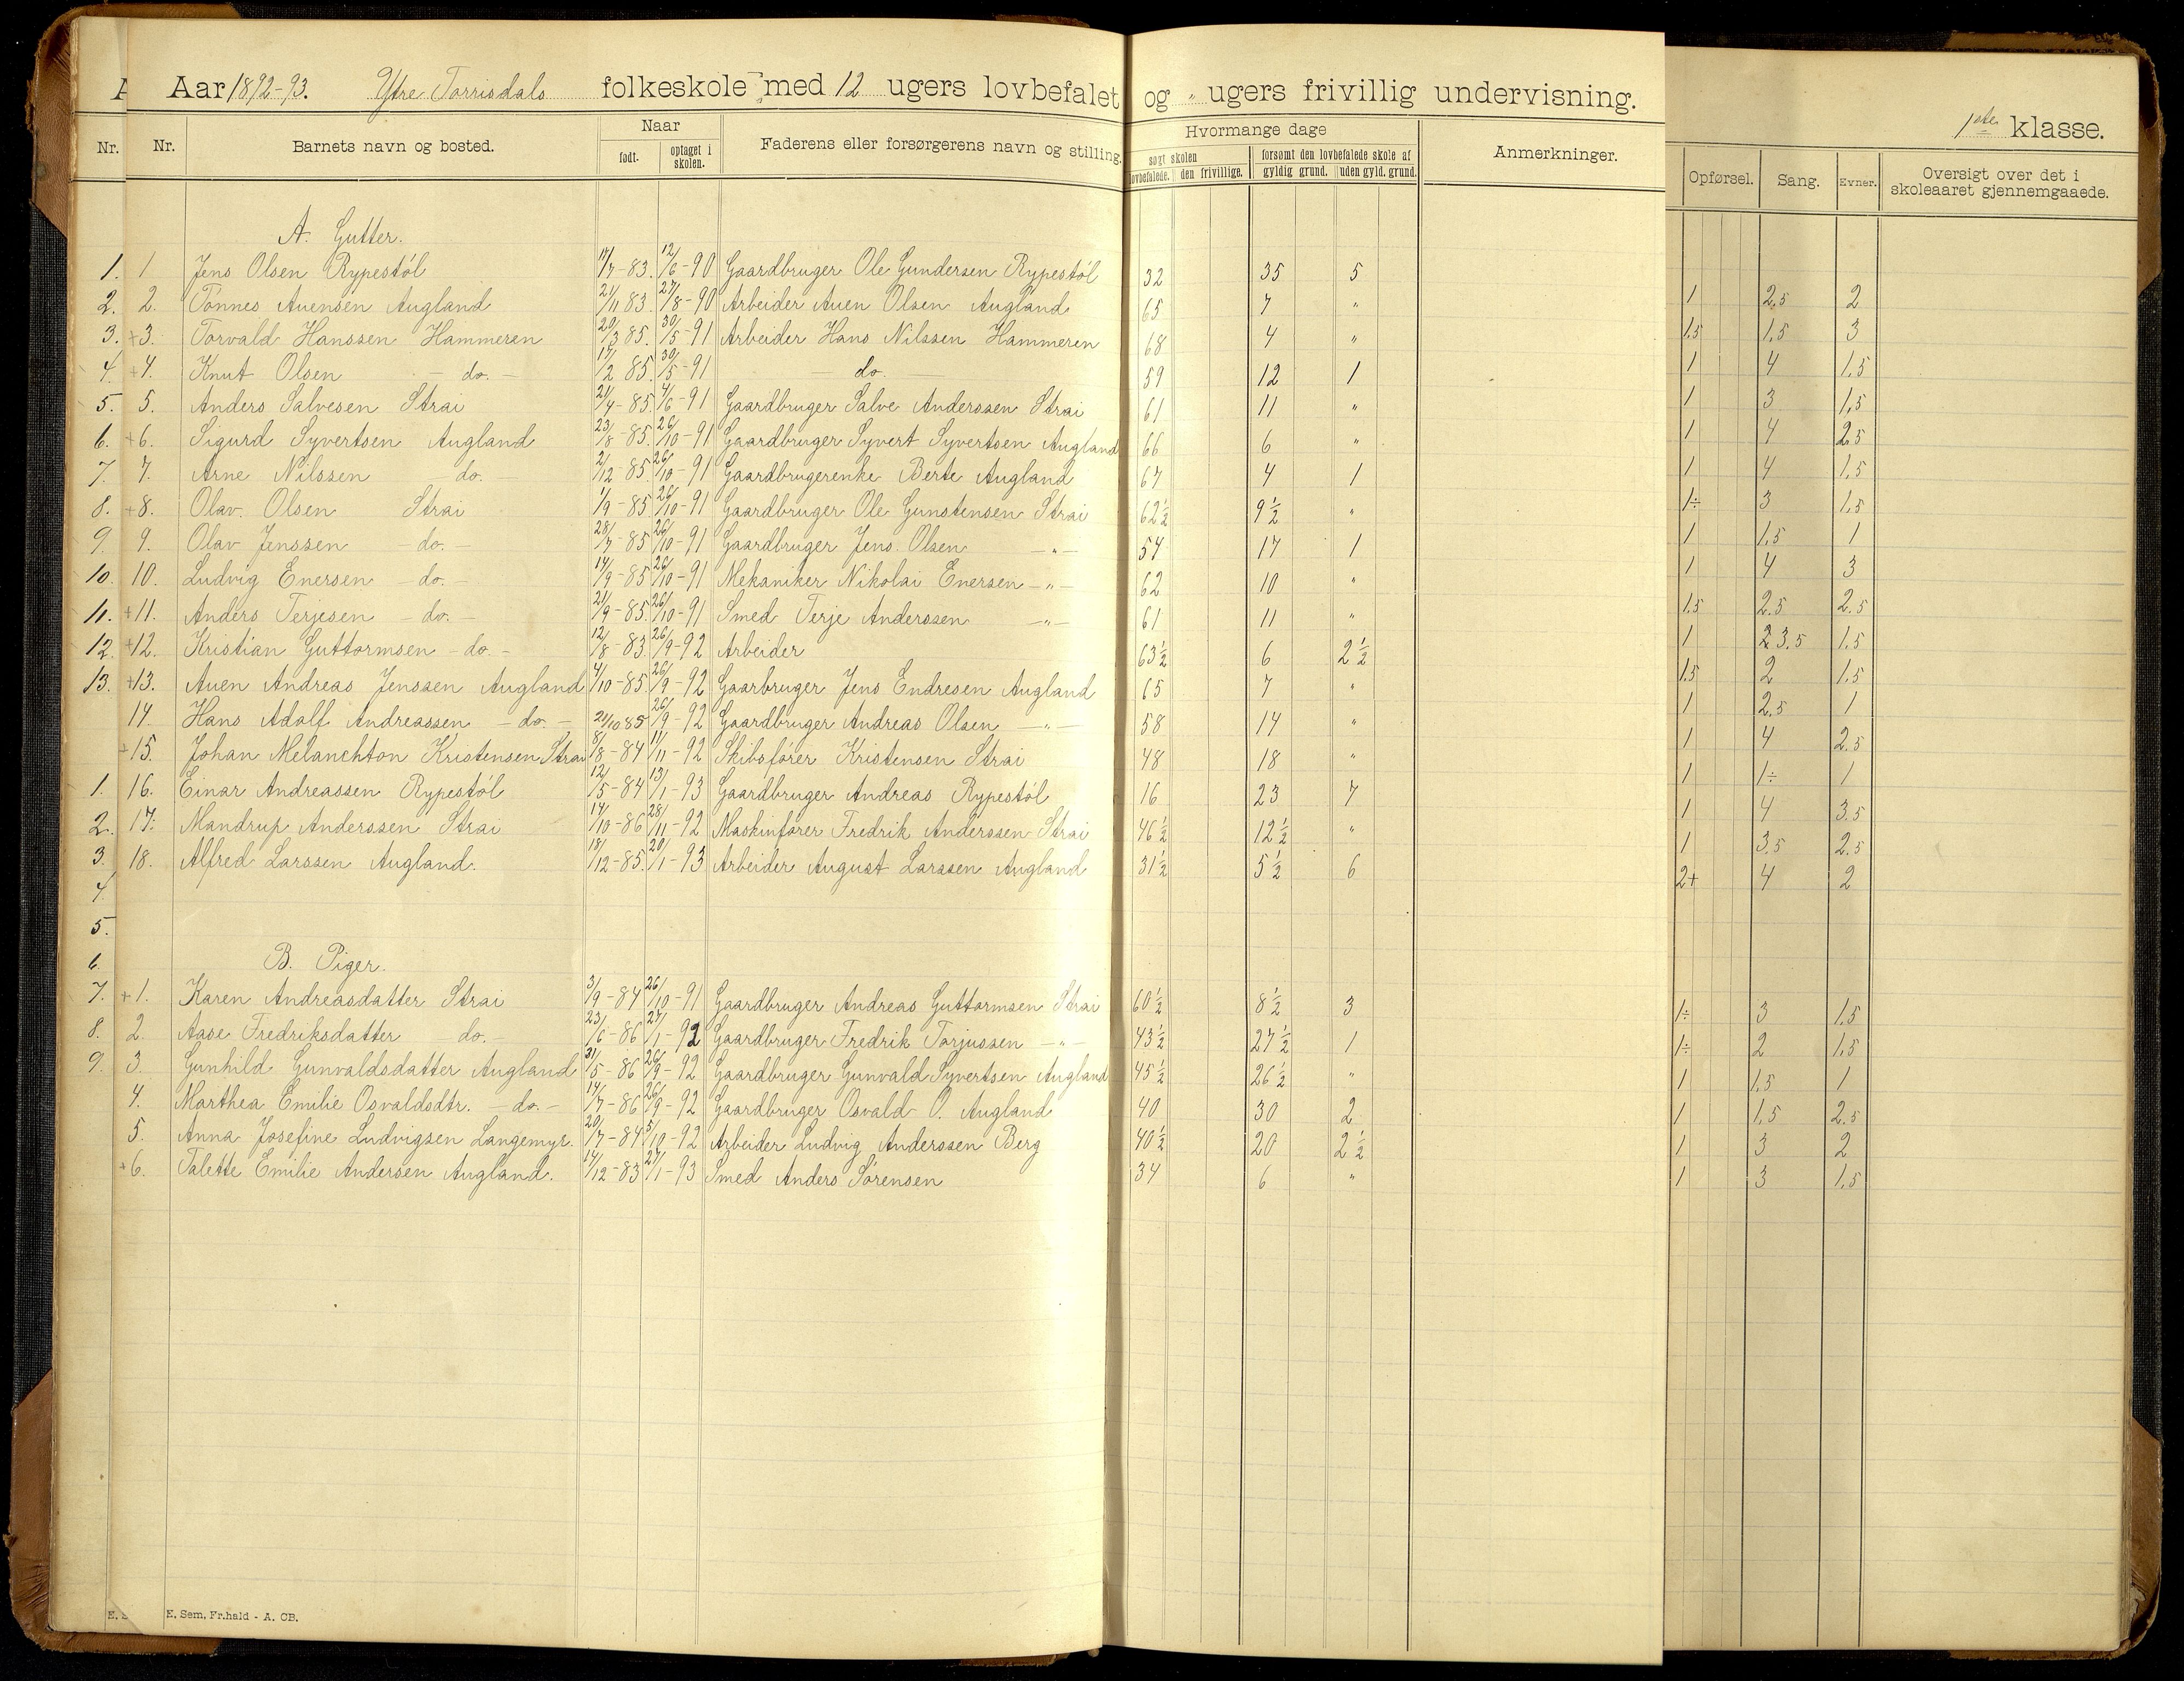 A Aar 1892-93. Ytre Torrisdals folkeskole med 12 ugers lovbefalet og " ugers frivillig undervisning.
1ste klasse.
Nr. Nr. Barnets navn og bosted. Naar født. optaget i skolen. Faderens eller forsørgerens navn og stilling. Hvormange dage søgt skolen lovbefalede. den frivillige. forsømt den lovbefalede skole af gyldig grund. uden gyld. grund. Anmerkninger. Opførsel. Sang. Evner. Oversigt over det i skoleaaret gjennemgaaede.
A. Gutter.
1. 1 Jens Olsen Rypestøl 17/7-83. 12/6-90 Gaardbruger Ole Gundersen Rypestøl 32 35 5
2. 2. Tønnes Auensen Augland 21/11 83. 27/8-90 Arbeider Auen Olsen Augland 65 7 " 1 2,5 2
3. +3. Torvald Hanssen Hammeren 20/3 85. 30/5-91 Arbeider Hans Nilssen Hammeren 68 4 " 1,5 1,5 3
4. +4. Knut Olsen - do. - 17/2 85. 30/5-91 - do. - 59 12 1 1 4 1,5
5. 5. Anders Salvesen Strai 21/4-85. 4/6-91 Gaardbruger Salve Anderssen Strai 61 11 " 1 3 1,5
6. +6. Sigurd Syvertsen Augland 23/8-85. 26/10-91 Gaardbruger Syvert Syvertsen Augland 66 6 " 1 4 2,5
7. 7. Arne Nilssen - do. - 2/12-85. 26/10-91 Gaardbrugerenke Berte Augland 67 4 1 1 4 1,5
8. +8. Olav. Olsen Strai 1/9-85 26/10-91 Gaardbruger Ole Gunstensen Strai 62½ 9½ " 1÷ 3 1,5
9. 9. Olav Jenssen - do. - 28/7-85 26/10-91 Gaardbruger Jens Olsen - " - 54 17 1 1 1,5 1
10. 10. Ludvig Enersen - do. - 14/9-85 26/10-91 Mekaniker Nikolai Enersen - " - 62 10 " 1 4 3
11. +11. Anders Terjesen - do. - 21/9-85. 26/10-91 Smed Terje Anderssen - " - 61 11 " 1,5 2,5 2,5
12. +12. Kristian Guttormsen - do. - 12/8-83. 26/9-92 Arbeider 63½ 6 2½ 1 2 3,5 1,5
13. +13. Auen Andreas Jenssen Augland 4/10-85. 26/9-92 Gaarbruger Jens Endresen Augland 65 7 " 1,5 2 1,5
14. Hans Adolf Andreassen - do. - 21/10 85 26/9-92 Gaardbruger Andreas Olsen - " - 58 14 " 1 2,5 1
+15. Johan Melanchton Kristensen Strai 8/8-84 11/11-92 Skibsfører Kristensen Strai 48 18 " 1 4 2,5
1. 16. Einar Andreassen Rypestøl 12/5-84 13/1-93 Gaardbruger Andreas Rypestøl 16 23 7 1 1÷ 1
2. 17. Mandrup Anderssen Strai 14/10-86 28/11-92 Maskinfører Fredrik Anderssen Strai 46½ 12½ " 1 4 3,5
3. 18. Alfred Larssen Augland. 18/12-85. 20/1-93 Arbeider August Larssen Augland 31½ 5½ 6 1 3,5 2,5
4. 2+ 4 2
5.
6. B. Piger.
7. +1. Karen Andreasdatter Strai 3/9-84 26/10-91 Gaardbruger Andreas Guttormsen Strai 60½ 8½ 3 1÷ 3 1,5
8. 2. Aase Fredriksdatter - do. - 23/6-86 27/1-92 Gaardbruger Fredrik Torjussen - " - 43½ 27½ 1 1÷ 2 1,5
9. 3. Gunhild Gunvaldsdatter Augland 31/5-86 26/9-92 Gaardbruger Gunvald Syvertsen Augland 45½ 26½ " 1 1,5 1
4. Marthea Emilie Osvaldsdtr. - do. - 14/7-86 26/9-92 Gaardbruger Osvald O. Augland 40 30 2 1 1,5 2,5
5. Anna Josefine Ludvigsen Langemyr. 20/7-84 5/10-92 Arbeider Ludvig Anderssen Berg 40½ 20 2½ 1 3 2
+6. Talette Emilie Andersen Augland. 14/12-83 27/1-93 Smed Anders Sørensen 34 6 " 1 3 1,5
E. S E. Sem, Fr.hald - A. CB.